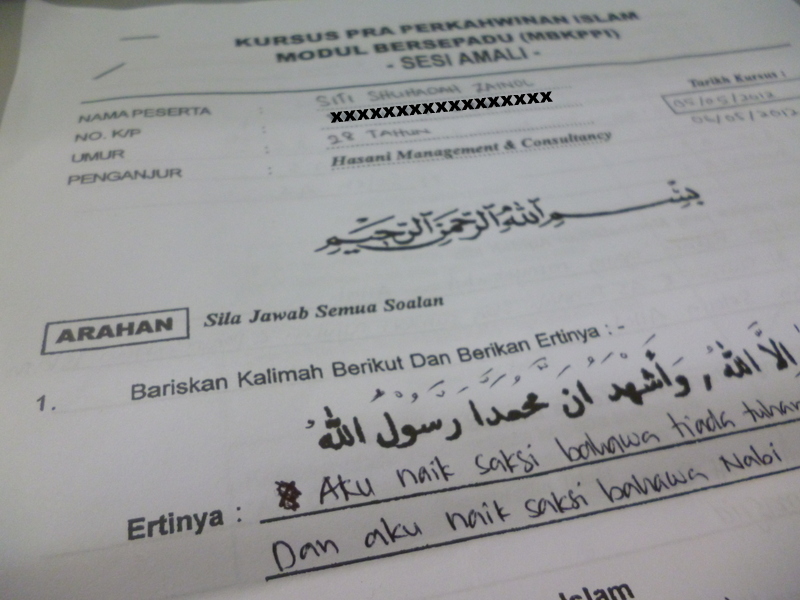 KURSUS PRA PERKAHWINAN ISLAM
MODUL BERSEPADU (MBKPPI)
- SESI AMALI -
NAMA PESERTA : SITI SHUHADAH ZAINOL
NO. K/P : XXXXXXXXXXXXXXXXX
UMUR : 28 TAHUN
PENGANJUR : Hasani Management & Consultancy
Tarikh Kursus :
05/05/2012
06/05/2012
بسم الله الرحمن الرحيم
ARAHAN Sila Jawab Semua Soalan
1. Bariskan Kalimah Berikut Dan Berikan Ertinya : -
إلا الله، وأشهد ان محمدا رسول الله
Ertinya : Aku naik saksi bahawa tiada tuhan
Dan aku naik saksi bahawa Nabi
Islam